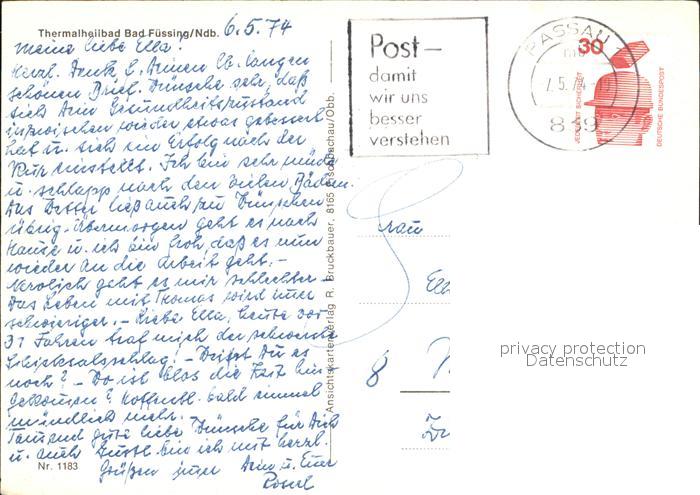 Thermalheilbad Bad Füssing/Ndb. 6.5.74
Meine liebe Ella!
Herzl. Dank f. Deinen lb. langen
schönen Brief. Wünsche sehr, daß
sich Dein Gesundheitszustand
inzwischen wieder etwas gebessert
hat u. sich ein Erfolg nach der
Kur einstellt. Ich bin sehr müde
u. schlapp nach den vielen Bädern.
Das Wetter ließ auch zu wünschen
übrig. Übermorgen geht es nach
Hause u. ich bin froh, daß es nun
wieder an die Arbeit geht. -
Nervlich geht es mir schlechter -
Das Leben mit Thomas wird immer
schwieriger. - Liebe Ella, heute vor
31 Jahren traf mich der schwerste
Schicksalsschlag! - Weißt Du es
noch? - Wo ist blos die Zeit hin-
gekommen? Hoffentl. bald einmal
mündlich mehr.
Tausend gute liebe Wünsche für Dich
u. auch bin ich mit herzl.
Grüßen immer Dein u. Eure
Nr. 1183
Ansichtskartenverlag R. Bruckbauer, 8165 Fischbachau/Obb.
Post -
damit
wir uns
besser
verstehen
PASSAU
7.5.74
839
30
JEDERZEIT SICHERHEIT
DEUTSCHE BUNDESPOST
Frau
Ella
8
privacy protection
Datenschutz